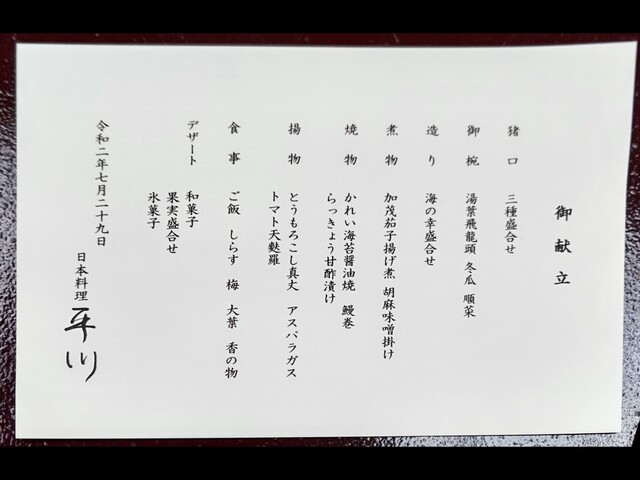 御献立
猪口 三種盛合せ
御椀 湯葉飛龍頭 冬瓜 順菜
造り 海の幸盛合せ
煮物 加茂茄子揚げ煮 胡麻味噌掛け
焼物 かれい海苔醤油焼 鰻巻
らっきょう甘酢漬け
揚物 とうもろこし真丈 アスパラガス
トマト天麩羅
食事 ご飯 しらす 梅 大葉 香の物
デザート 和菓子
果実盛合せ
氷菓子
令和二年七月二十九日
日本料理 平川